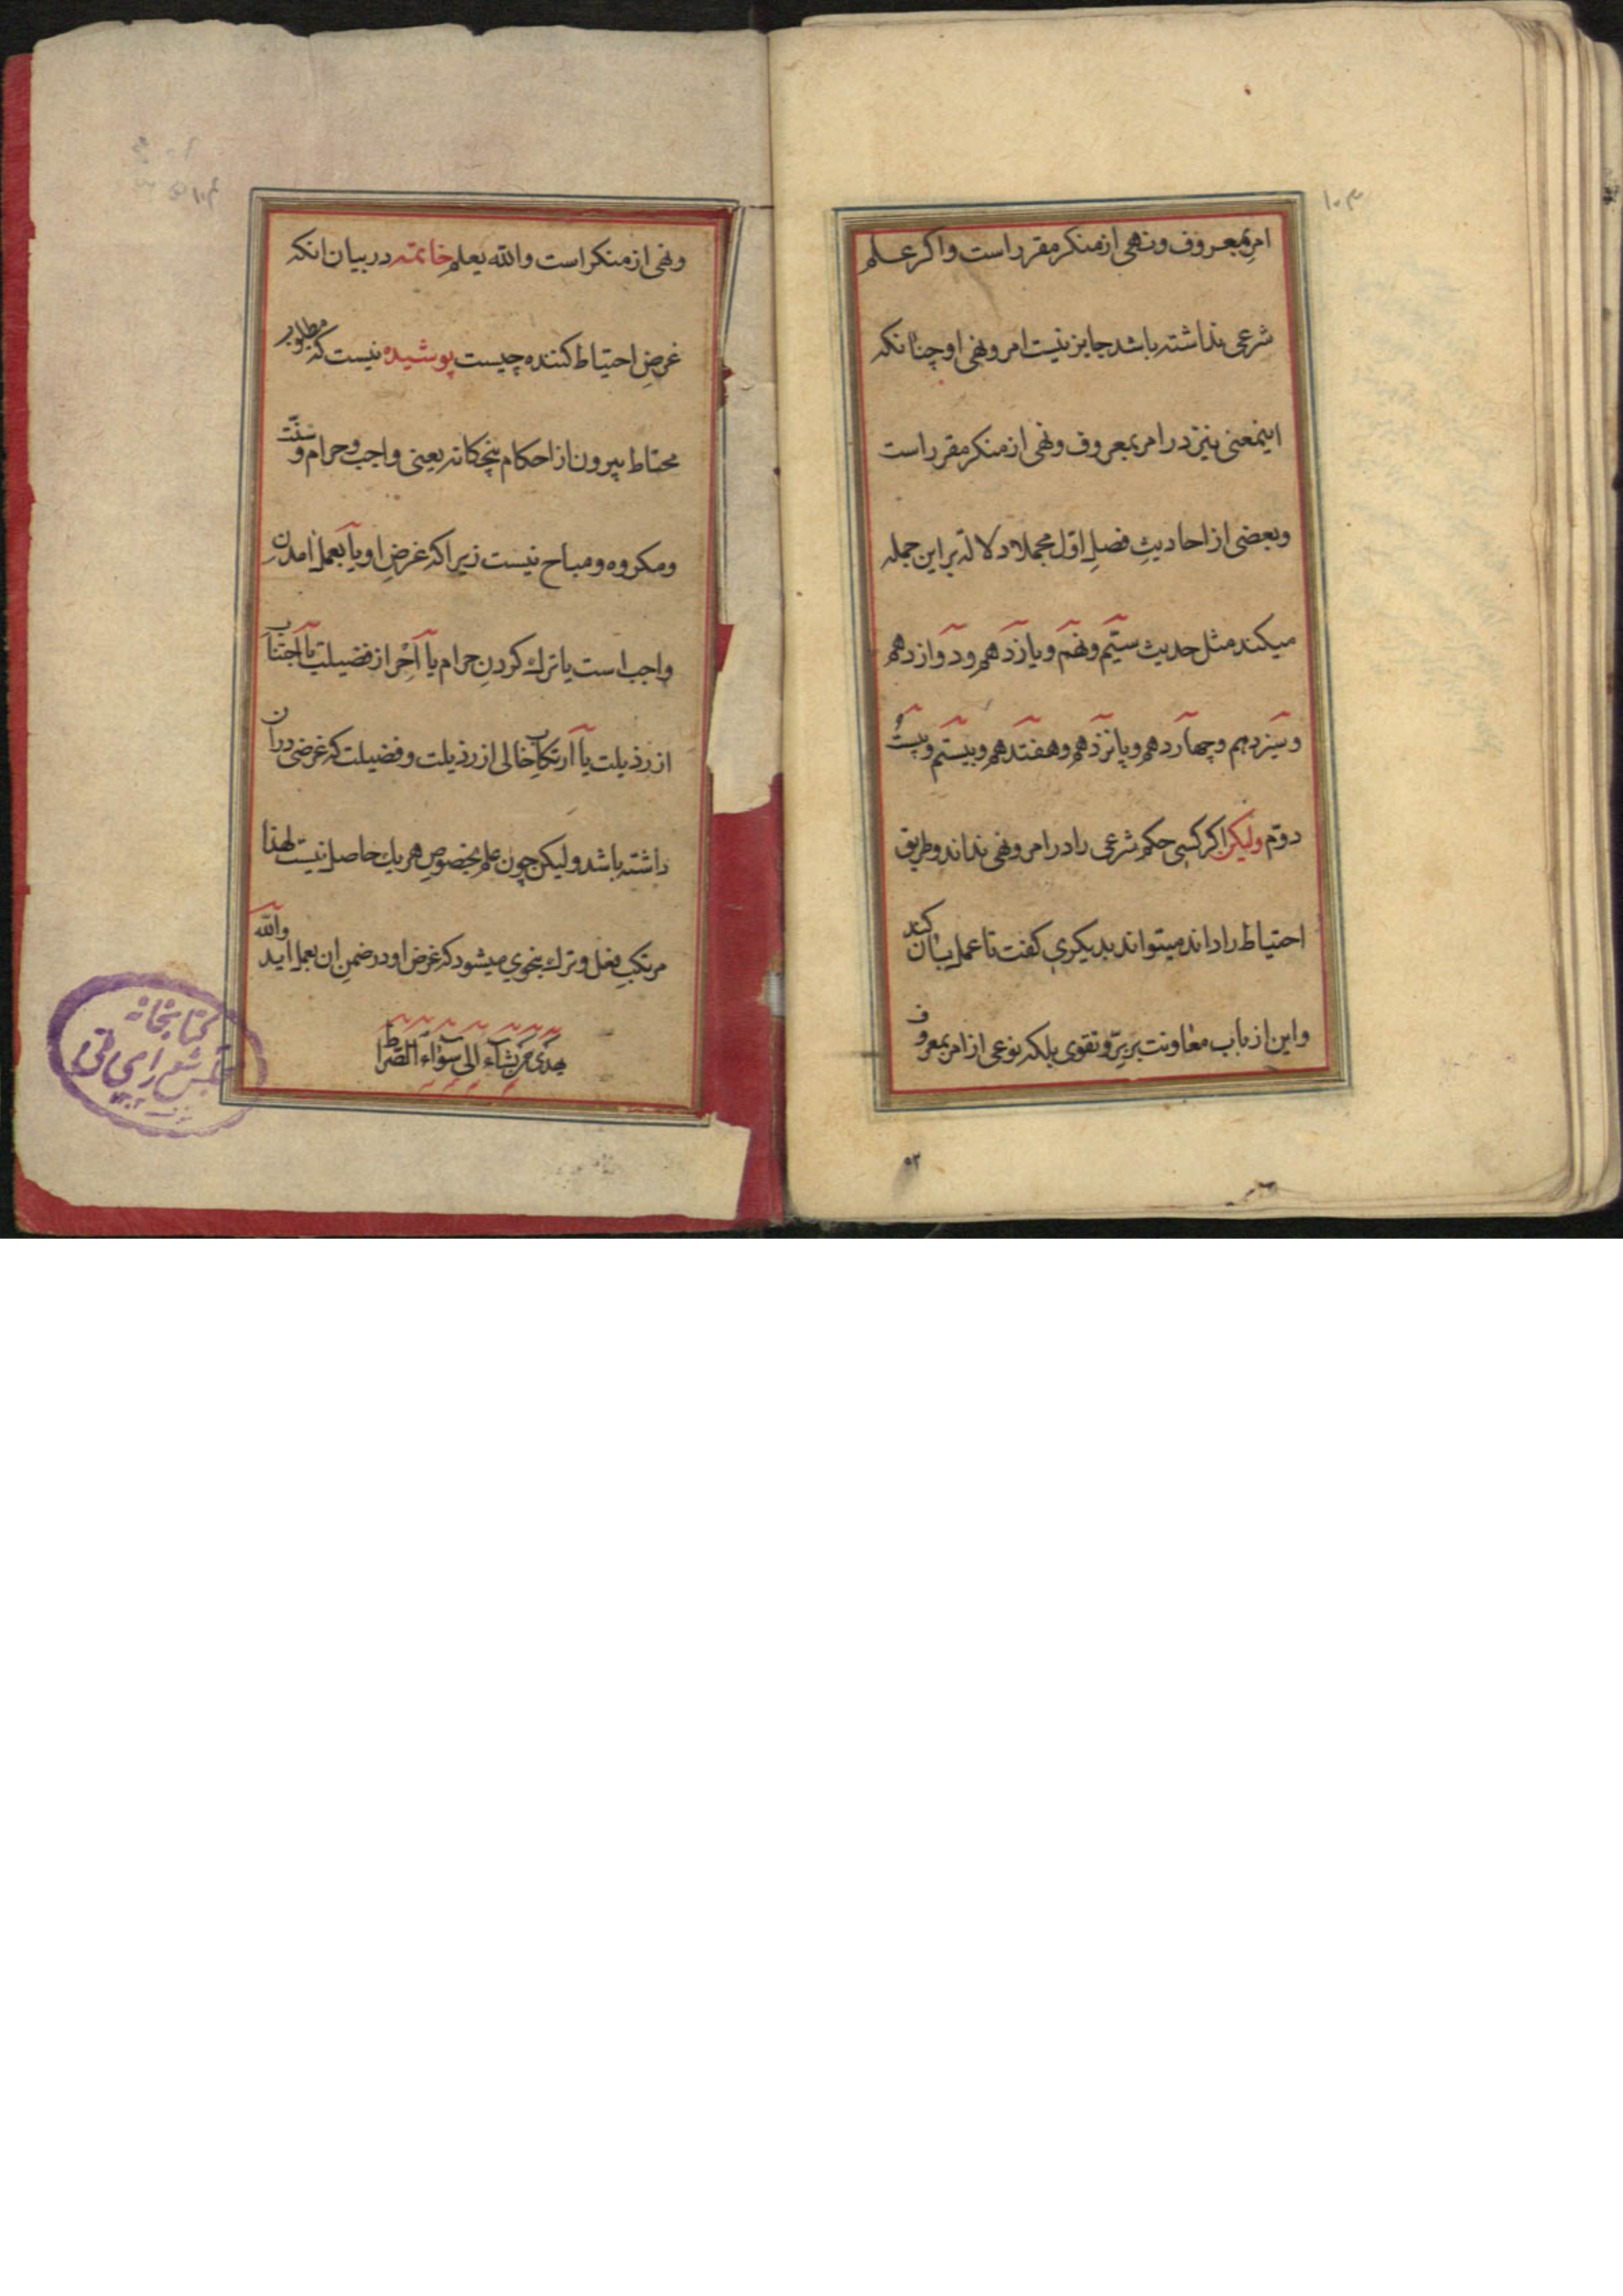 ۱۰۳
امرِ بمعروف ونهی از منکر مقرر است واکر علم
شرعی نداشته باشد جایز نیست امر ونهی او چنانکه
اینمعنی نیز در امر بمعروف ونهی از منکر مقرر است
وبعضی از احادیثِ فصلِ اوّل مجملا دلالة بر این جمله
میکند مثل حدیث سیّم ونهم ویازدهم ودوازدهم
وسیزدهم وچهاردهم وپانزدهم وهفتدهم وبیستم وبیست و
دوّم ولیکن اکر کسی حکم شرعی را در امر ونهی نداند وطریق
احتیاط را داند میتواند بدیکری کفت تا عمل بان کند
واین از باب معاونت بر برّ وتقوی بلکه نوعی از امر بمعروف
۵۲
ونهی از منکر است والله یعلم خاتمه در بیان انکه
غرضِ احتیاط کننده چیست پوشیده نیست که مطلوب
محتاط بیرون از احکام پنجکانه یعنی واجب وحرام وسنّت
ومکروه ومباح نیست زیرا که غرضِ او یا بعمل امدنِ
واجب است یا ترك کردنِ حرام یا احراز فضیلت یا اجتناب
از رذیلت یا ارتکابِ خالی از رذیلت وفضیلت که غرضی در ان
داشته باشد ولیکن چون علم بخصوصِ هریك حاصل نیست لهذا
مرتکبِ فعل وترك بنحوی میشود که غرض او در ضمنِ ان بعمل اید والله
یهدی من یشآء الی سوآء الصّراط
کتابخانه
مجلس شورای ملی
۱۳۰۲